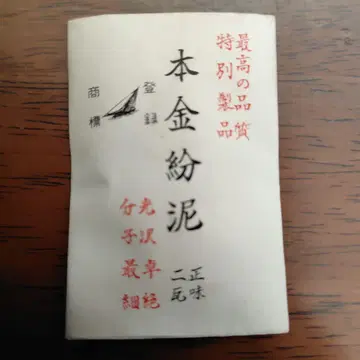 最高の品質
特別製品
登録
商標
本金紛泥
正味
二瓦
光沢卓絶
分子最細